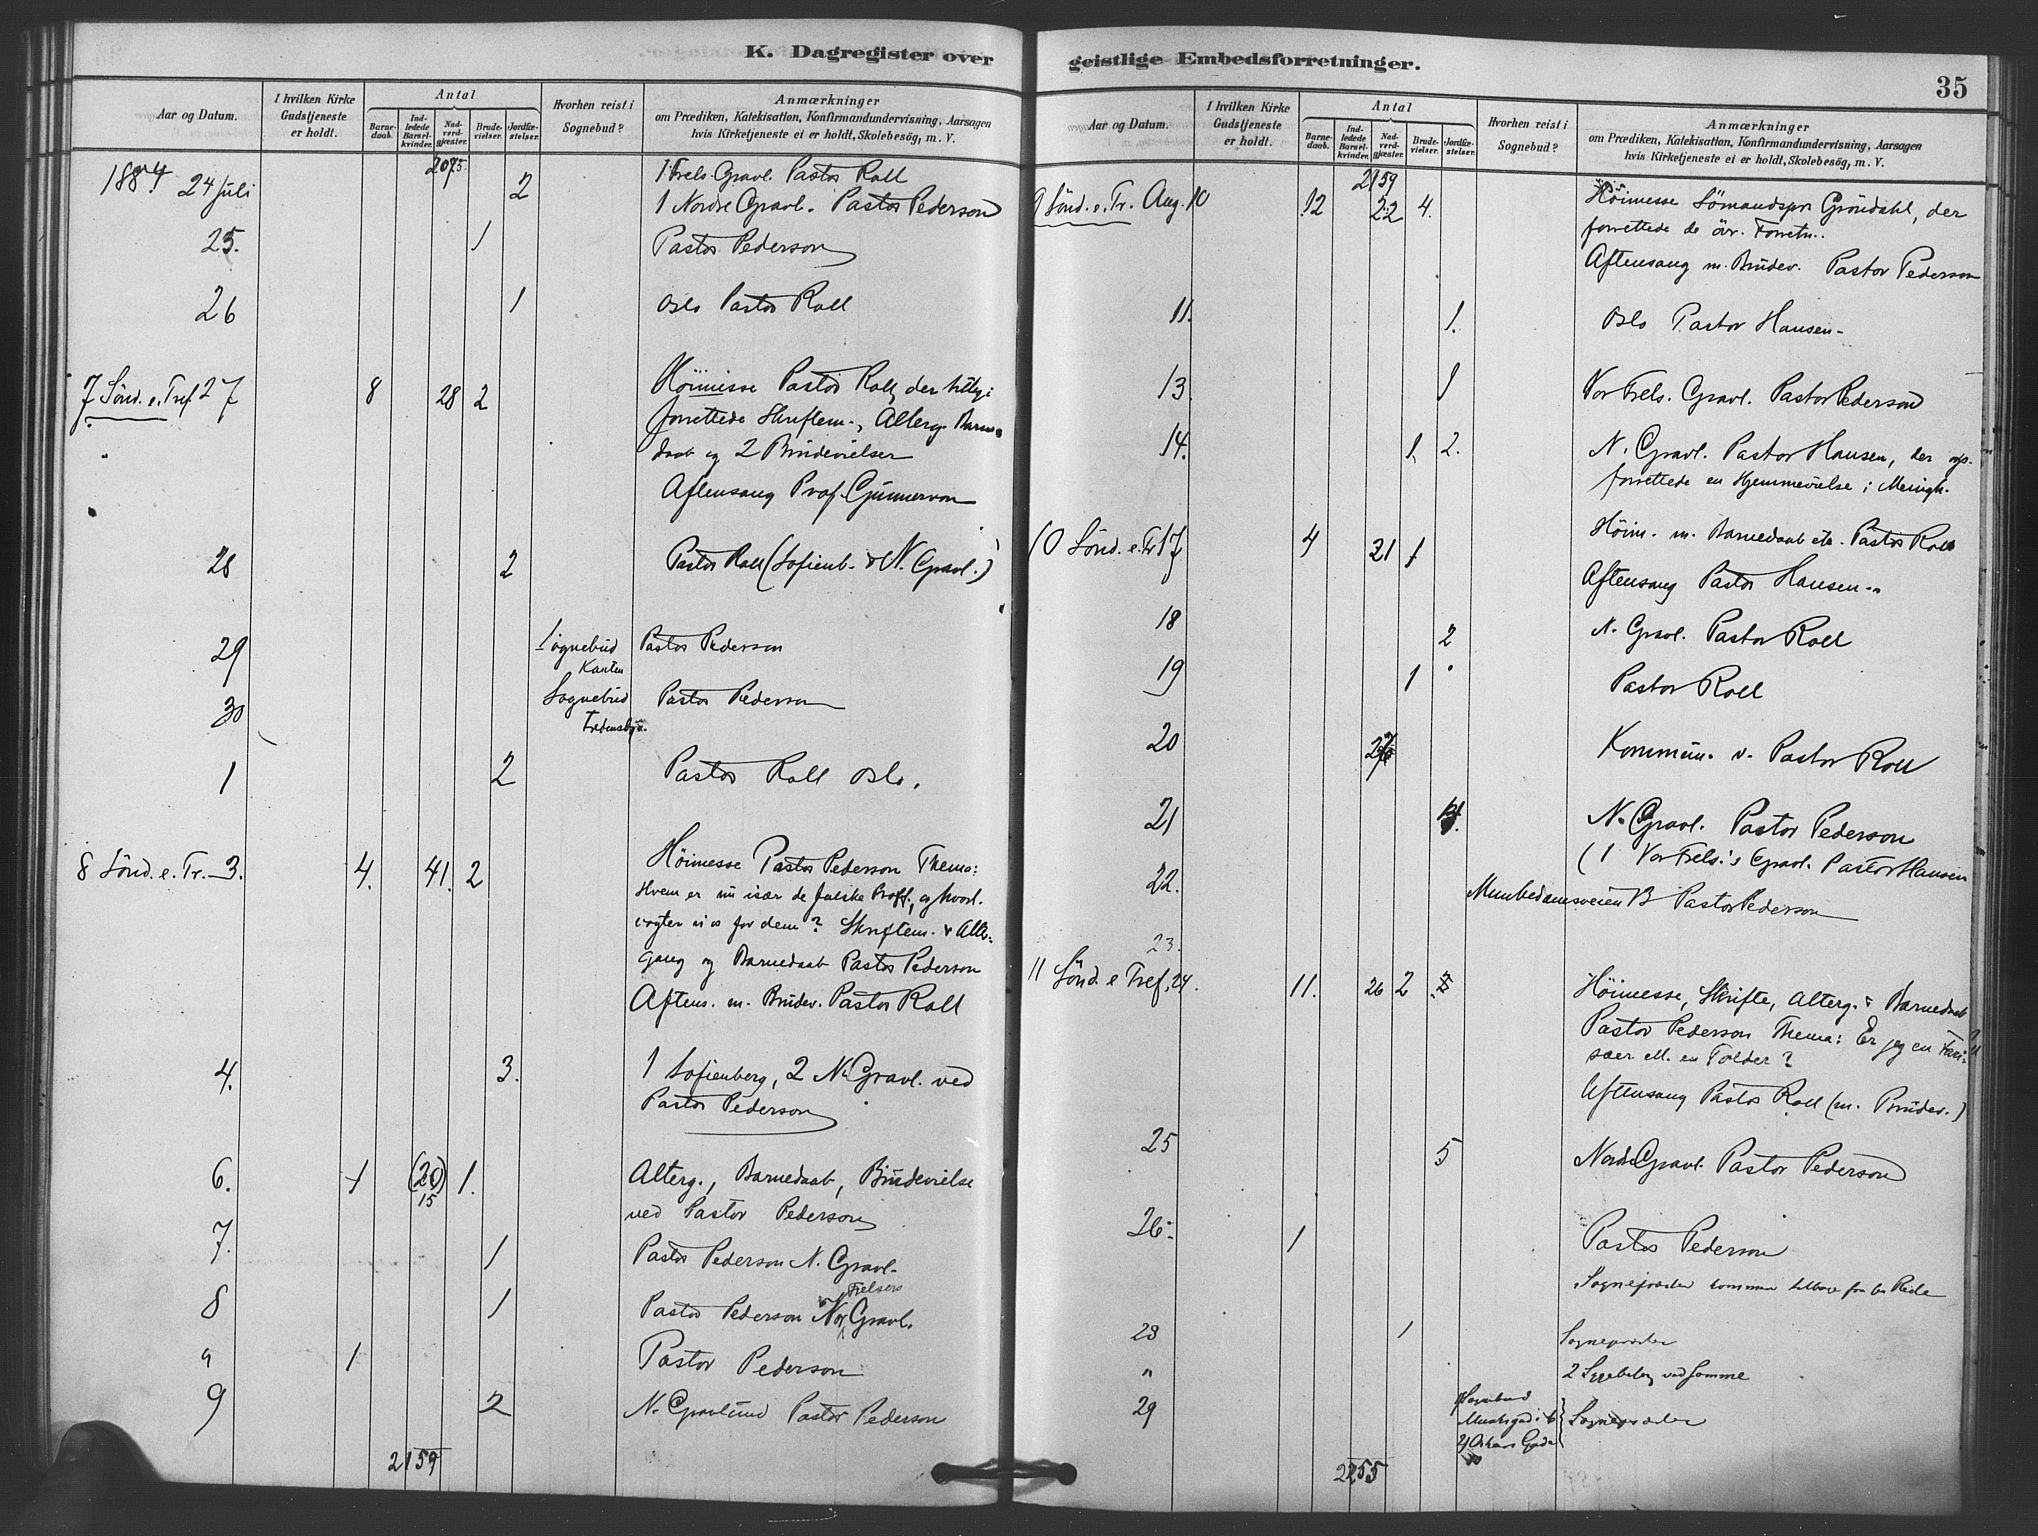 K. Dagregister over
Aar og Datum.
I hvilken Kirke Gudstjeneste er holdt.
Antal
Barnedaab.
Indledede Barselkvinder.
Nadverdgjæster.
Brudevielser.
Jordfæstelser.
Hvorhen reist i Sognebud?
Anmærkninger
om Prædiken, Katekisation, Konfirmandundervisning, Aarsagen
hvis Kirketjeneste ei er holdt, Skolebesøg, m. V.
2075
1884 24 Juli 2 1 Frels. Gravl. Pastor Roll
1 Nordre Gravl. Pastor Pederson
25. 1 Pastor Pederson
26 1 Oslo Pastor Roll
7 Sönd. e. Tref 27 8 28 2 Höimesse Pastor Roll, der tillige
forrettede Skriftem., Alterg. Barne-
daab og 2 Brudevielser
Aftensang Prof. Gunnerson
28 2 Pastor Roll (Sofienb. & N. Gravl.)
29 Sognebud Pastor Pederson
30 Sognebud Pastor Pederson
1 2 Pastor Roll Oslo.
8 Sönd. e. Tr. 3. 4. 41. 2 Höimesse Pastor Pederson Thema:
Hvem er nu især de falske Proff., og hvorl.
vogter vi os for dem? Skriftem. & Alter-
gang og Barnedaab Pastor Pederson
Aftens. m. Brudev. Pastor Roll
4. 3. 1 Sofienberg, 2 N. Gravl. ved
Pastor Pederson
6. 1 (20) 15 1. Alterg., Barnedaab, Brudevielse
ved Pastor Pederson
7. 1 Pastor Pederson N. Gravl.
8 1 Pastor Pederson Vor Frelsers Gravl.
" 1 Pastor Pederson
9 2 N. Gravlund Pastor Pederson
2159
geistlige Embedsforretninger.
35
Aar og Datum.
I hvilken Kirke Gudstjeneste er holdt.
Antal
Barnedaab.
Indledede Barselkvinder.
Nadverdgjæster.
Brudevielser.
Jordfæstelser.
Hvorhen reist i Sognebud?
Anmærkninger
om Prædiken, Katekisation, Konfirmandundervisning, Aarsagen
hvis Kirketjeneste ei er holdt, Skolebesøg, m. V.
2159
9 Sönd. e. Tr. Aug. 10 12 22 4. Höimesse Sömandspr. Gröndahl, der
forrettede de övr. Forretn..
Aftensang m. Brudev. Pastor Pederson
11. 1. Oslo Pastor Hansen
13 1 Vor Frels. Gravl. Pastor Pederson
14. 1 2. N. Gravl. Pastor Hansen, der og.
forrettede en Hjemmevielse i Menigh.
10 Sönd. e. Tr 17 4 21 1 Höim. m. Barnedaab etc. Pastor Roll
Aftensang Pastor Hansen
18 2 N. Gravl. Pastor Roll
19 1 Pastor Roll
20 Kommun. v. Pastor Roll
21 N. Gravl. Pastor Pederson
(1 Vor Frels.'s Gravl. Pastor Hansen
22. Munkedamsveien Pastor Pederson
23.
11 Sönd. e Tref. 24. 11. 26 2 Höimesse, Skrifte, Alterg. & Barnedaab
Pastor Pederson Thema: Er jeg en Fari-
sæer ell. en Tolder?
Aftensang Pastor Roll (m. Brudev.)
25 5 Nordre Gravl. Pastor Pederson
26. 1 Pastor Pederson
Sognepræsten kommen tilbage fra en Reise
28 1 Sognepræsten
" 2 ved samme
29 Sognebud Sognepræsten
2255